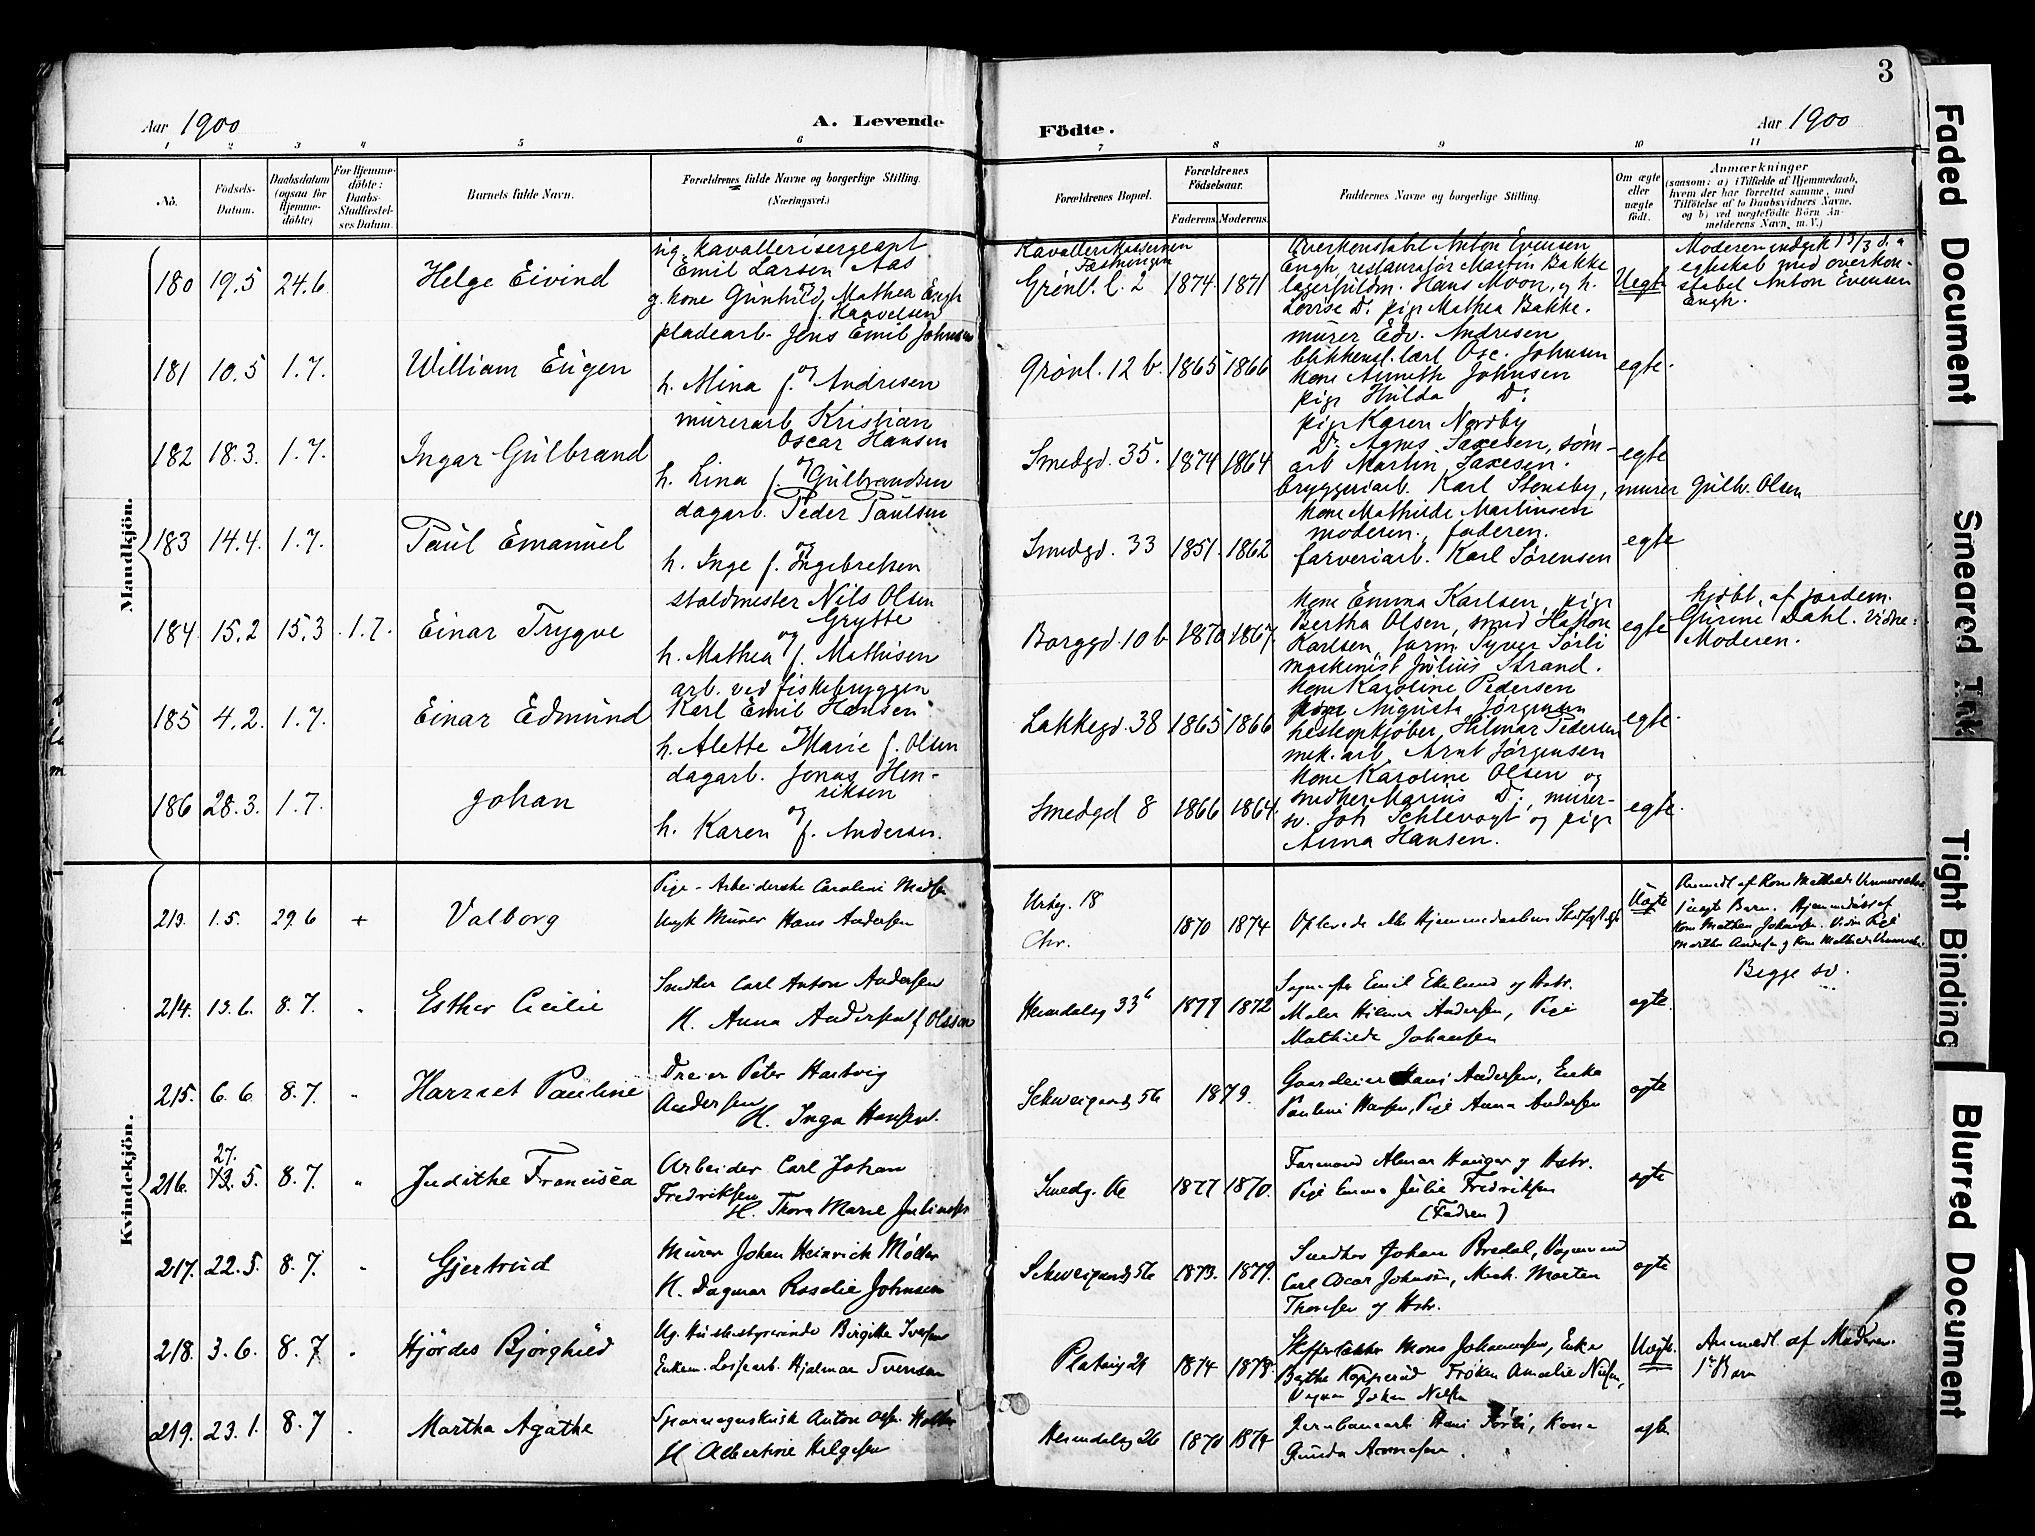 3
Aar 1900
A. Levende
Födte.
Aar 1900
1 2 3 4 5 6 7 8 9 10 11
No.
Födsels-Datum.
Daabsdatum (ogsaa for Hjemme-döbte)
For Hjemme-döbte: Daabs-Stadfæstel-ses Datum.
Barnets fulde Navn.
Forældrenes fulde Navne og borgerlige Stilling. (Næringsvei.)
Forældrenes Bopæl.
Forældrenes Födselsaar.
Faderens. Moderens.
Faddernes Navne og borgerlige Stilling.
Om ægte eller uægte födt.
Anmærkninger
(saasom: a) i Tilfælde af Hjemmedaab,
hvem der har forrettet samme, med
Tilföielse af to Daabsvidners Navne,
og b) ved uægtefödte Börn An-
melderens Navn m. V.)
Mandkjön.
180 19.5 24.6 Helge Eivind
ug. Kavallerisergeant
Emil Larsen Aas
g. kone Gunhild Mathea Engh
f. Haavelsen
Grönl. l. 2 1874 1871
Overkonstabel Anton Evensen
Engh, restauratør Martin Bakke
lagerfuldm. Hans Moon, g. h.
Lovise D. pige Mathea Bakke.
Uegte
Moderen indgik 13/3 d. a
egteskab med overkon-
stabel Anton Evensen
Engh.
181 10.5 1.7. William Eugen
pladearb. Jens Emil Johnsen
og
h. Mina f. Andresen
Grönl. 12 b. 1865 1866
murer Edv. Andresen
blikkensl. lærl Osc. Johnsen
kone Anneth Johnsen
pige Hulda D:
egte.
182 18.3. 1.7. Ingar Gulbrand
murerarb. Kristian
Oscar Hansen
og
h. Lina f. Gulbrandsen
Smedgd. 35. 1874 1864
pige Karen Nordby
D. Agnes Saxesen, søm-
arb Martin Saxesen.
egte
183 14.4. 1.7. Paul Emanuel
dagarb. Peder Paulsen
og
h. Inge f. Ingebretsen
Smedgd. 33 1851. 1862
bryggeriarb. Karl Stensby, murer Gulbr. Olsen
kone Mathilde Martinsen
moderen, faderen.
farveriarb. Karl Sørensen
egte
184 15.2 15.3 1.7. Einar Trygve
staldmester Nils Olsen
Grytte
og
h. Mathea f. Mathisen
Borggd. 10 b 1870 1867.
kone Emma Karlsen, pige
Bertha Olsen, smed Hakon
Karlsen, form. Syver Sørli
maskinist Julius Strand.
egte
hjdbt. af jordem.
Gurine Dahl. Vidne:
Moderen.
185 4.2. 1.7. Einar Edmund
arb. ved fiskebryggen
Karl Emil Hansen
og
h. Alette Marie f. Olsen
Lakkegd. 38 1865 1866
kone Karoline Pedersen
pige Augusta Jørgensen
hesteopkjøber Hilmar Pedersen
mek. arb. Arnt Jørgensen
egte.
186 28.3. 1.7. Johan
dagarb. Jonas Hen-
riksen
og
h. Karen f. Andersen.
Smedgd 8 1866 1864.
kone Karoline Olsen og
snedker Marius D:, murer-
sv. Joh Schlevogt og pige
Anna Hansen.
egte.
Kvindekjön.
213. 1.5. 29.6 + Valborg
Pige-Arbeiderske Caroline Madsen
Ungk Murer Hans Andersen
Urteg. 18
Chr.
1870 1874
Uægte
Kone Mathea Johansen. Vidne Pige
Begge sv.
214. 13.6. 8.7. Esther Cicilie
Snedker Carl Anton Andersen
H. Anna Andersen f. Olsson
Heimdalsg 33b 1877 1872
Emil Ekelund og Hstr.
Maler Hilmar Andersen, Pige
Mathilde Johansen
egte.
215. 6.6 8.7. Harriet Pauline
Dreier Peter Hartvig
Andersen H. Inga Hansen.
Schweigaardsg 56 1879.
Gaardeier Hans Andersen, Enke
Pauline Hansen, Pige Anna Andersen
egte
216. 27. 5. 8.7. Judithe Francisca
Arbeider Carl Johan
Fredriksen
H. Thora Marie Juliussen
Smedg. 1877 1870.
Formand Almar Hauger og Hstr.
Pige Emma Julie Fredriksen
egte
217. 22.5. 8.7. Gjertrud
Murer Johan Heinrich Møller
H. Dagmar Rosalie Johnsen
Schweigaardsg 56 1873. 1879.
Snedker Johan Bredal, Vognmand
Carl Oscar Johnsen, Mek. Morten
Thoresen og Hstr.
egte
218. 3.6. 8.7 Hjördis Björghild
Ug. Husbestyrerinde Birgitte Iversen
Enkem. Lossearb. Hjalmar Svensen
Platousg 24 1874 1878.
Mons Johannesen, Enke
Berthe Kopperud Frøken Amalie Nilsen,
Vognm Johan Nilsen
Uægte.
Anmeldt af Moderen.
1ste Barn
219. 23.1. 8.7 Martha Agathe
Sporvognskusk Anton Holter
H. Albertine Helgesen
Heimdalsg 26 1870 1874
Jernbanearb Hans Sørli, Kone
Gunda Arnesen.
egte
Faded Document
Smeared Ink
Tight Binding
Blurred Document